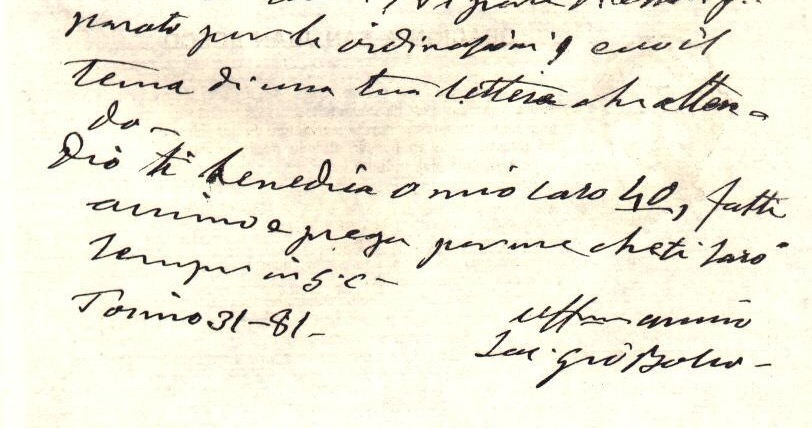 parato per le ordinazioni, ecco il
tema di una tua lettera che atten-
do -
Dio ti benedica o mio caro 40, fatti
animo e prega per me che ti sarò
sempre in G. C. -
Torino 31-81-
aff.mo amico
Sac. Gio Bosco -